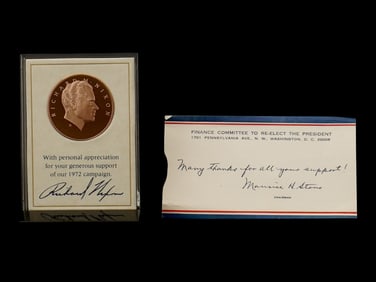 RICHARD M. NIXON
With personal appreciation
for your generous support
of our 1972 campaign.
Richard Nixon
FINANCE COMMITTEE TO RE-ELECT THE PRESIDENT
1701 PENNSYLVANIA AVE., N. W., WASHINGTON, D. C. 20006
Many thanks for all your support!
Maurice H Stans
CHAIRMAN